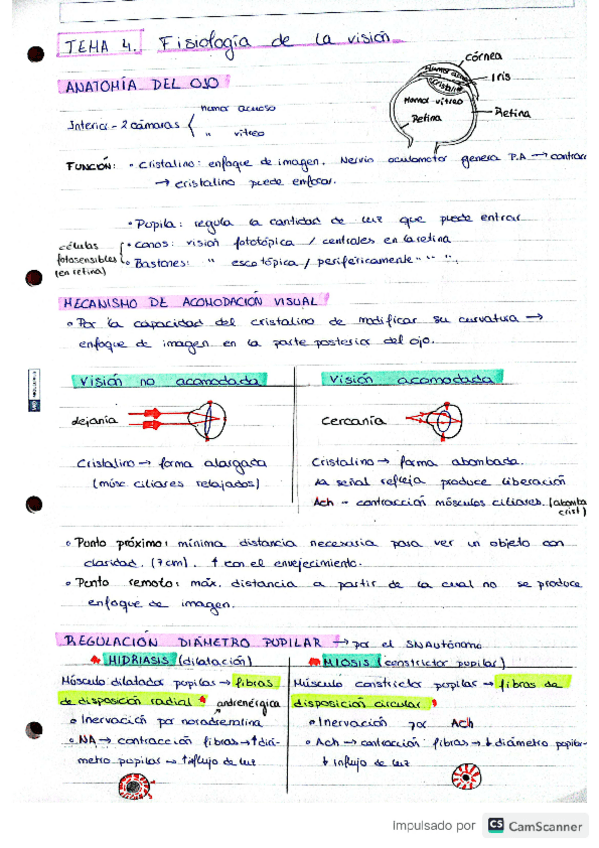 TEMA 4. Fisiología de la visión
ANATOMÍA DEL OJO
córnea
Iris
Humor acuoso
Cristalino
Humor vítreo
Retina
Retina
Interior - 2 cámaras
Humor acuoso
" vítreo
FUNCIÓN: • Cristalino: enfoque de imagen. Nervio oculomotor genera P.A → contrac
→ cristalino puede enfocar.
• Pupila: regula la cantidad de luz que puede entrar
células fotosensibles (en retina)
• Conos: visión fototópica / centrales en la retina
• Bastones: " escotópica / periféricamente " " ".
MECANISMO DE ACOMODACIÓN VISUAL
• Por la capacidad del cristalino de modificar su curvatura →
enfoque de imagen en la parte posterior del ojo.
Visión no acomodada
lejanía
Cristalino → forma alargada
(músc. ciliares relajados)
Visión acomodada
cercanía
Cristalino → forma abombada.
La señal refleja produce liberación
Ach - contracción músculos ciliares. (abomba
crist)
• Punto próximo: mínima distancia necesaria para ver un objeto con
claridad. (7cm). ↑ con el envejecimiento.
• Punto remoto: máx. distancia a partir de la cual no se produce
enfoque de imagen.
REGULACIÓN DIÁMETRO PUPILAR → por el SNAutónomo
MIDRIASIS (dilatación)
Músculo dilatador pupilar → fibras
de disposición radial
andrenérgica
• Inervación por noradrenalina
• NA → contracción fibras → ↑ diá-
metro pupilar → ↑ influjo de luz
MIOSIS (constrictor pupilar)
Músculo constrictor pupilar → fibras de
disposición circular
• Inervación por Ach
• Ach → contracción fibras → ↓ diámetro pupilar
↓ influjo de luz
Impulsado por CS CamScanner